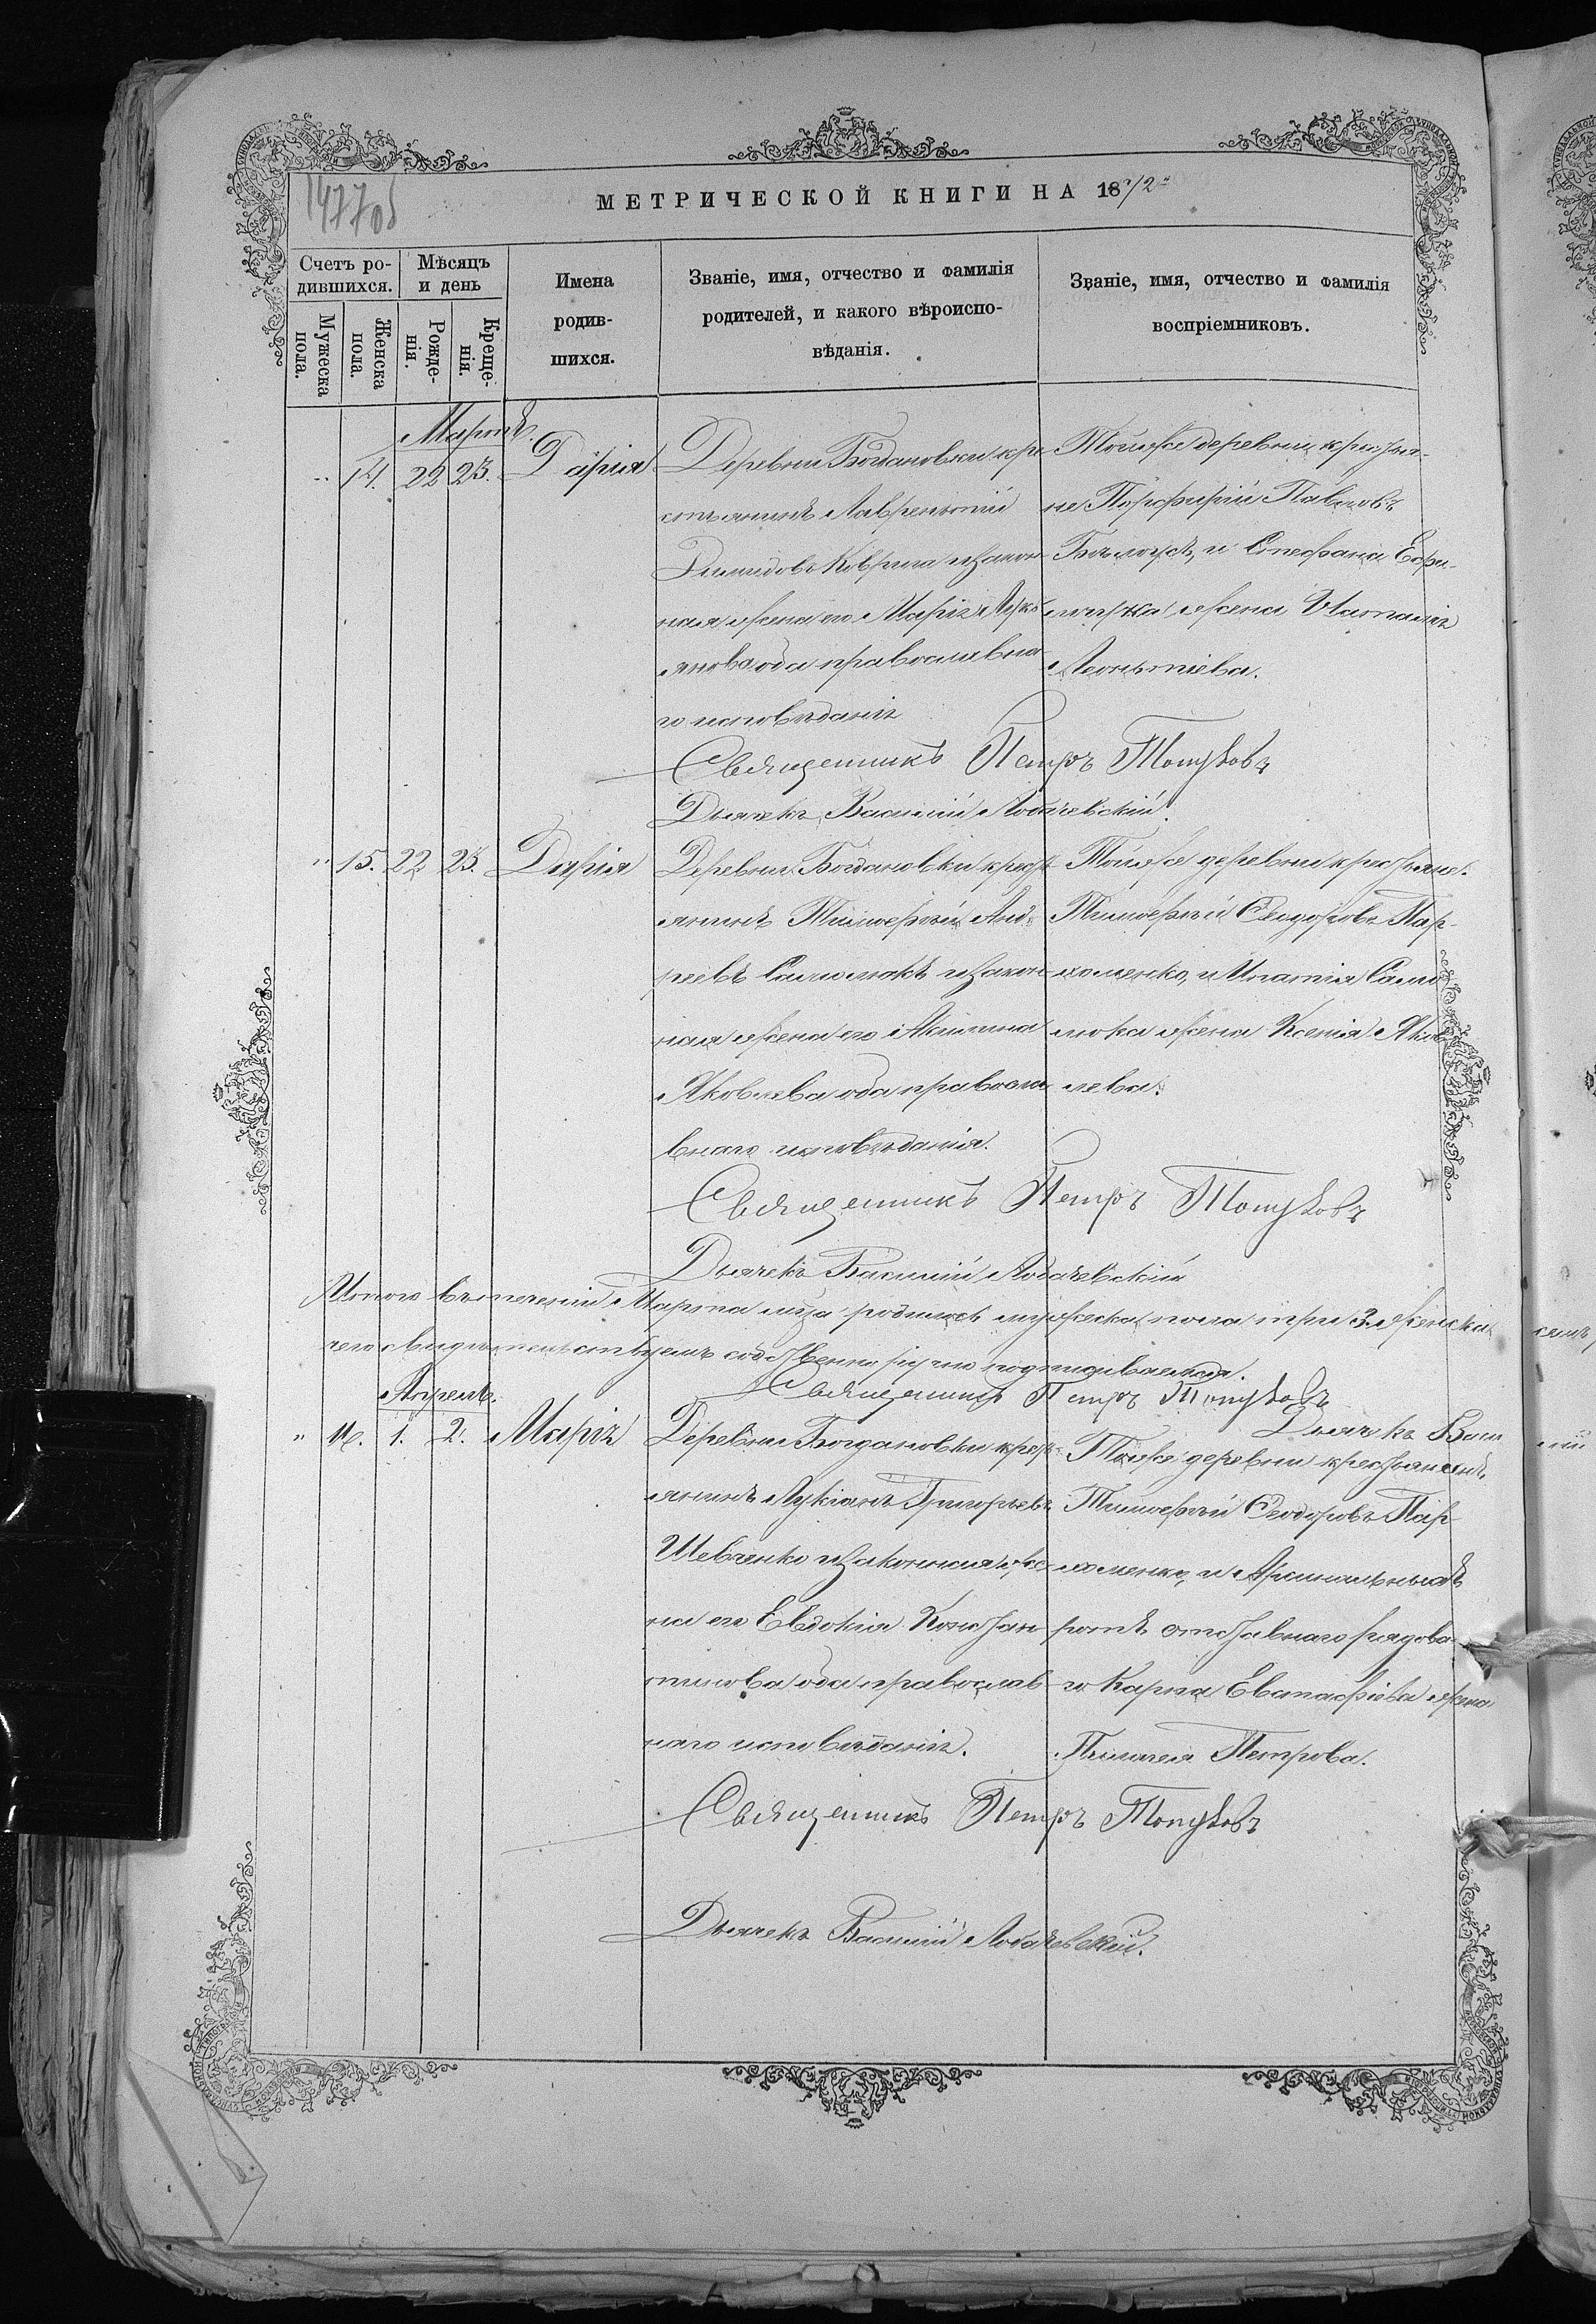 МЕТРИЧЕСКОЙ КНИГИ НА 1872
Счетъ ро-
дившихся.
Мѣсяцъ
и день
Мужеска
пола.
Женска
пола.
Рожде-
нія.
Креще-
нія.
Имена
родив-
шихся.
Званіе, имя, отчество и фамилія
родителей, и какого вѣроиспо-
вѣданія.
Званіе, имя, отчество и фамилія
воспріемниковъ.
Мартъ.
14. 22 23. Дарія
Деревни Богдановки кре
стьянинъ Лаврентій
Демидовъ Коврига и закон
ная жена его Марія Лукі
янова оба православна
го исповѣданія
Тойже деревни крестья-
не Порфирій Павловъ
Бѣлоусъ, и Стефана
жена
Леонтіева.
Священникъ Петръ
Дьячекъ Василій Лобачевскій.
15. 22 23. Дарія
Деревни Богдановки крест
янинъ Тимоѳей Анд
реевъ и закон
ная жена его Акилина
Яковлева оба правосла
внаго исповѣданія.
Тойже деревни крестьяне.
Тимоѳей Ѳеодоровъ Пар-
хоменко, и Ипатія Само
люка жена Ксенія Яков
лева.
Священникъ Петръ
Дьячекъ Василій Лобачевскій
Итого въ теченіи Марта м͠ца родилось мужеска пола три 3. женска
чемъ свидѣтельствуемъ собственноручно подписываемся.
Священникъ Петръ
Дьячекъ Васи
Апрель.
16. 1. 2. Марія
Деревни Богдановки крест
янинъ Лукіанъ Григорьевъ
Шевченко и законная же
на его Евдокія Констан
тинова оба православ
наго исповѣданія.
Тойже деревни крестьянинъ
Тимоѳей Ѳеодоровъ Пар-
хоменко, и
ротъ отставнаго рядова
го Карпа Евстафіева жена
Пелагея Петрова.
Священникъ Петръ
Дьячекъ Василій Лобачевскій.